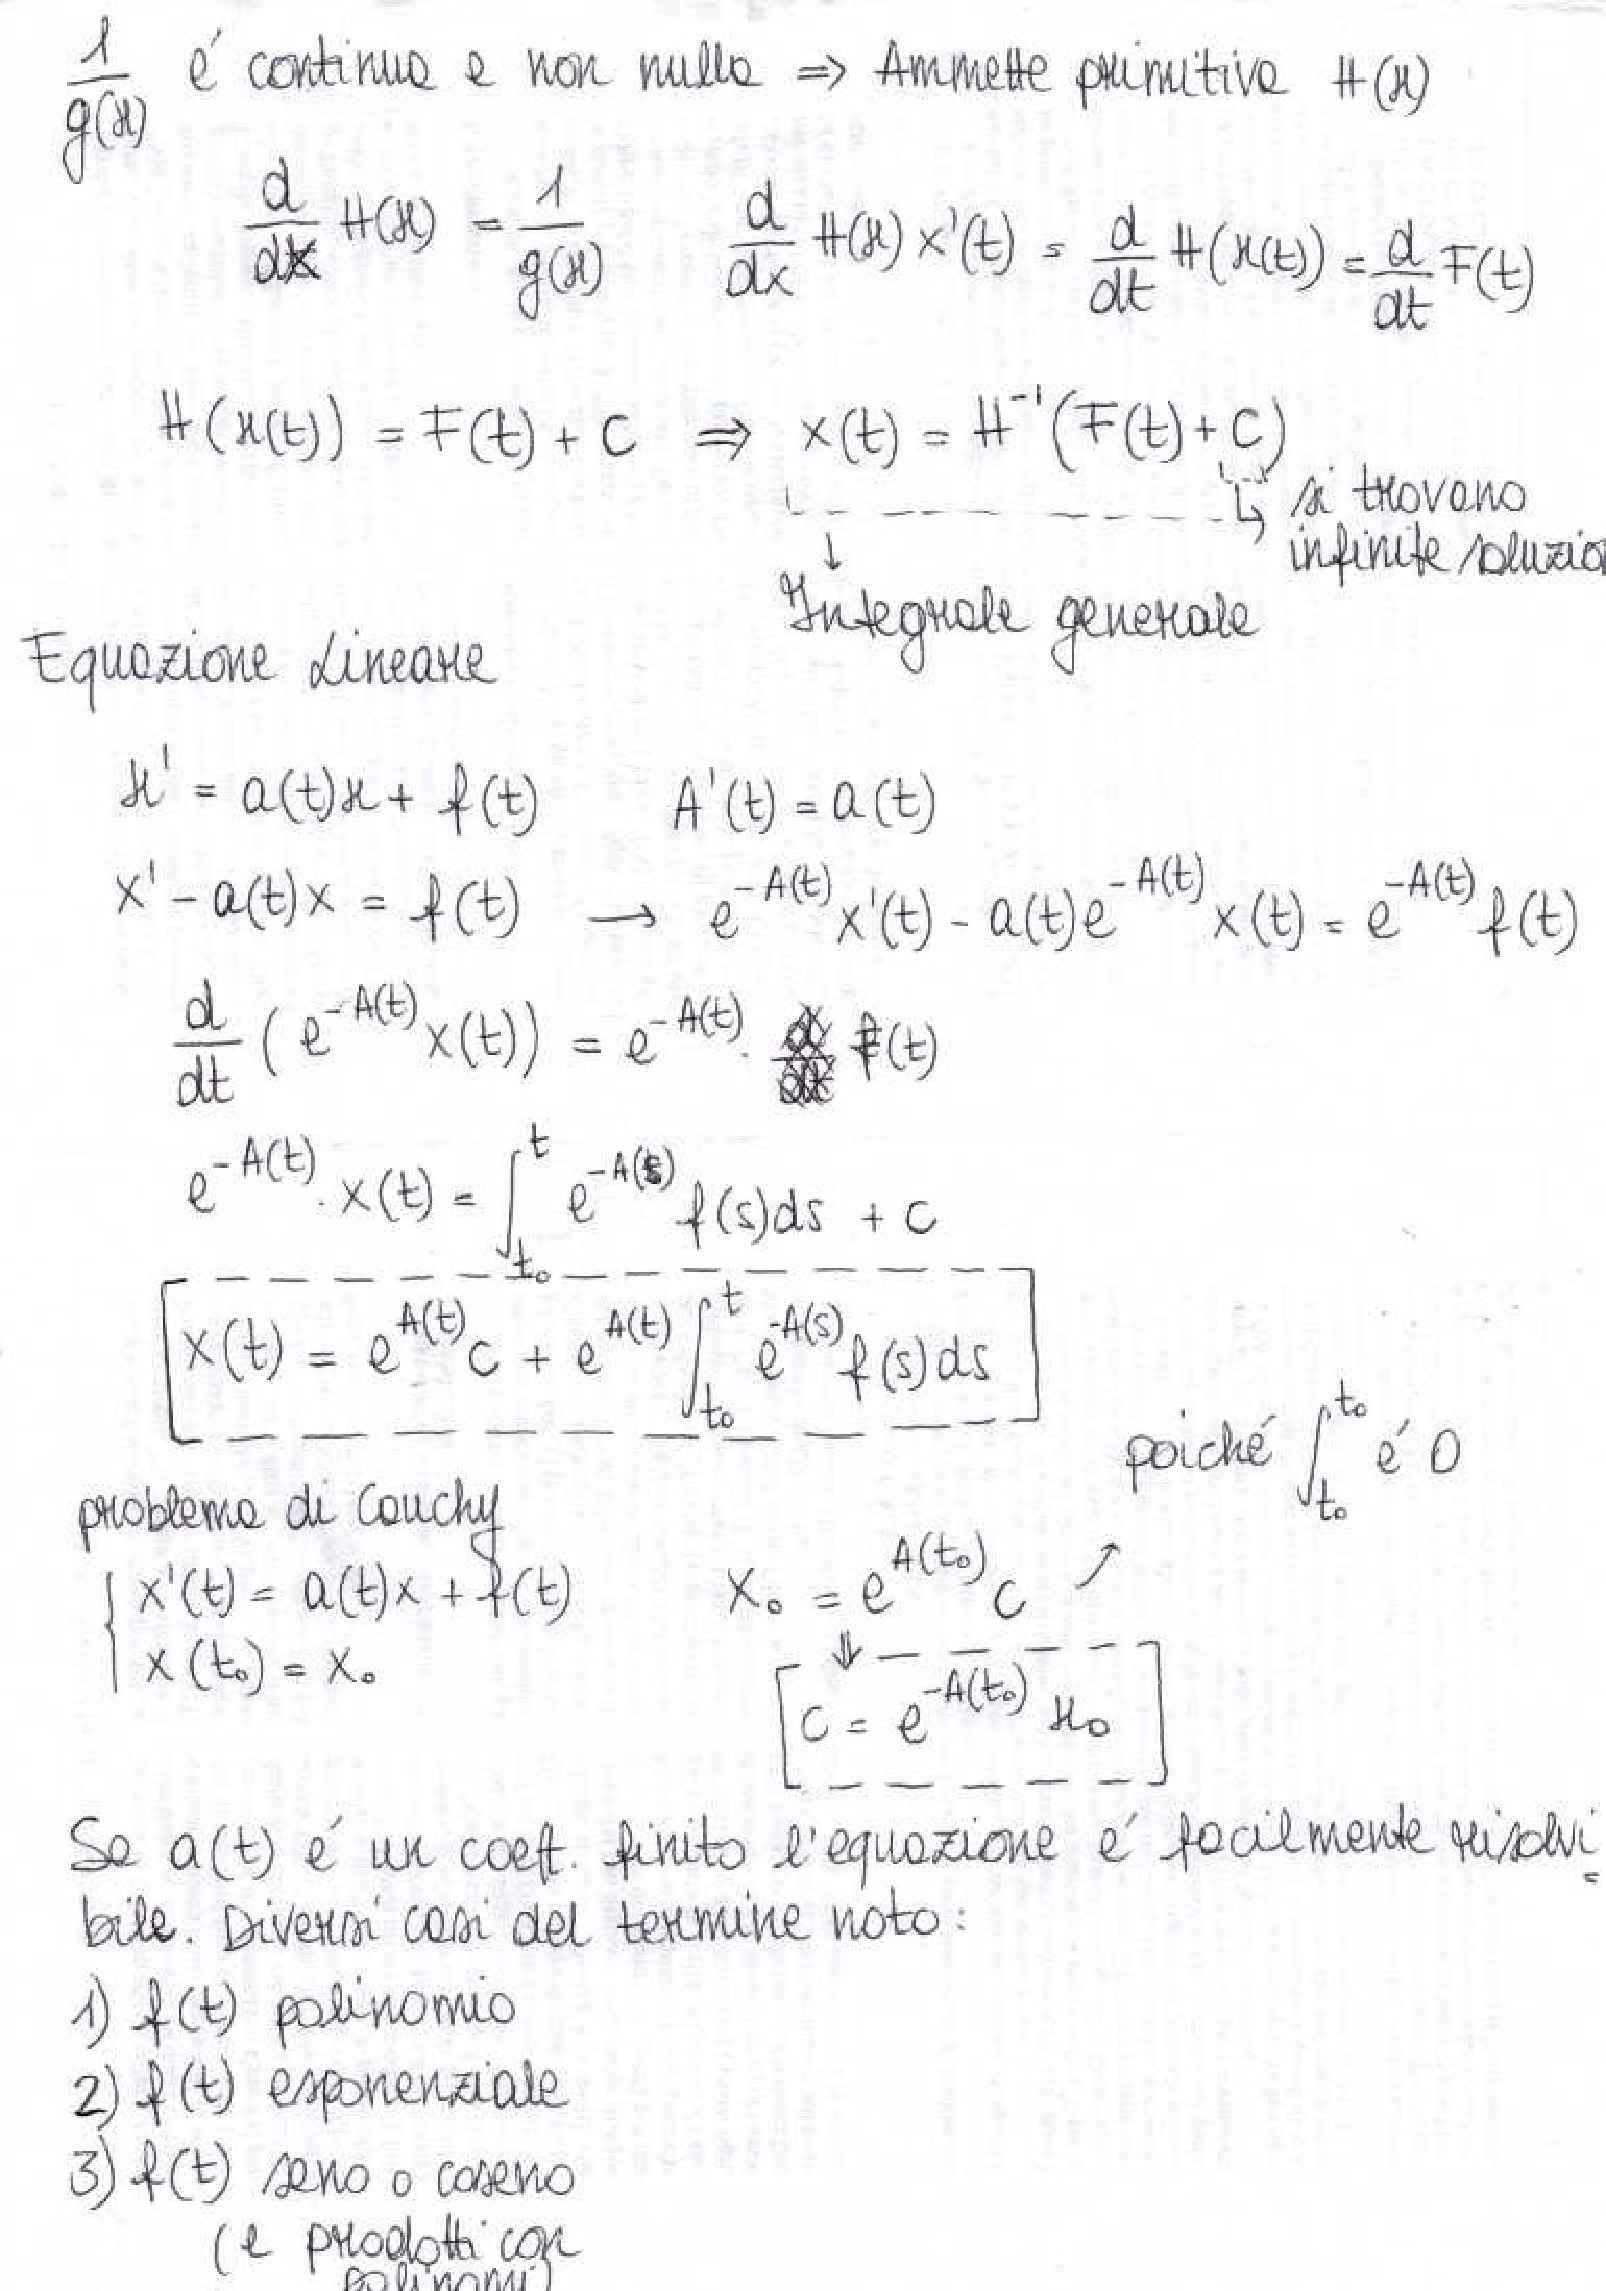 1/g(x) é continua e non nulla ⇒ Ammette primitiva H(x)
d/dx H(x) = 1/g(x)    d/dx H(x) x'(t) = d/dt H(x(t)) = d/dt F(t)
H(x(t)) = F(t) + C ⇒ x(t) = H⁻¹(F(t) + C)
↳ si trovano
infinite soluzio
↓
Integrale generale
Equazione Lineare
x' = a(t)x + f(t)    A'(t) = a(t)
x' - a(t)x = f(t) → e^{-A(t)} x'(t) - a(t)e^{-A(t)} x(t) = e^{-A(t)} f(t)
d/dt (e^{-A(t)} x(t)) = e^{-A(t)} · f(t)
e^{-A(t)} · x(t) = ∫_{t₀}^{t} e^{-A(s)} f(s)ds + c
x(t) = e^{A(t)} c + e^{A(t)} ∫_{t₀}^{t} e^{-A(s)} f(s)ds
poiché ∫_{t₀}^{t₀} é 0
problema di Cauchy
x'(t) = a(t)x + f(t)    x₀ = e^{A(t₀)} c ↗
x(t₀) = x₀
⇓
c = e^{-A(t₀)} x₀
Se a(t) é un coeff. finito l'equazione é facilmente risolvi=
bile. Diversi casi del termine noto:
1) f(t) polinomio
2) f(t) esponenziale
3) f(t) seno o coseno
(e prodotti con
polinomi)